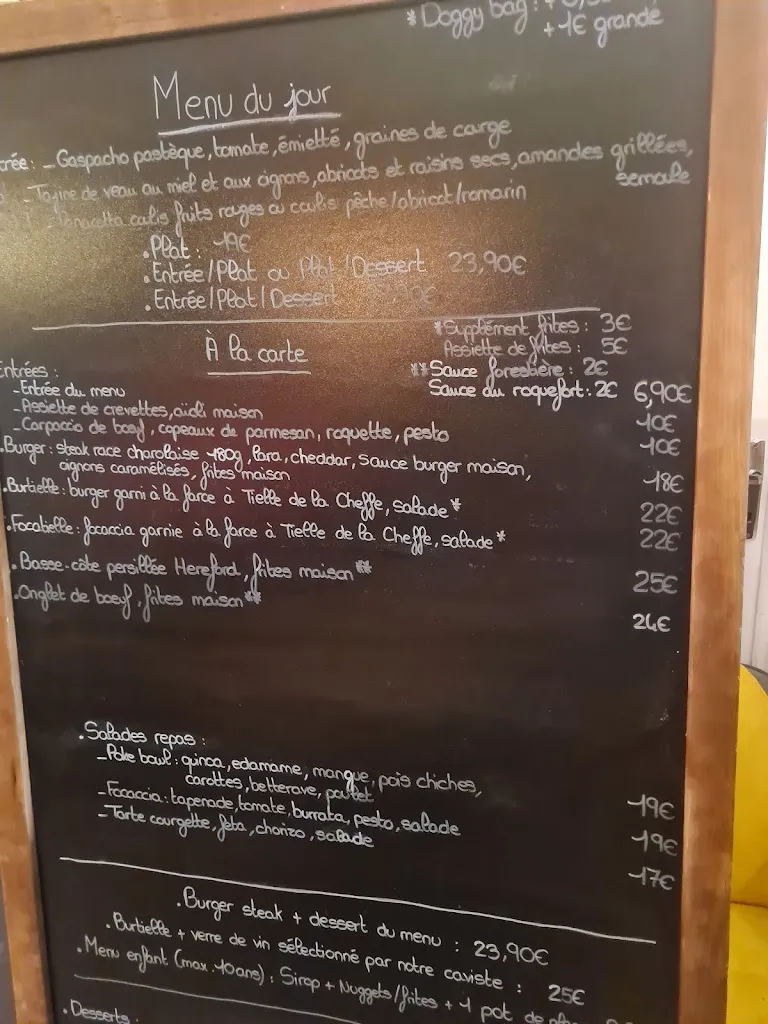 *Doggy bag :
+1€ grande
Menu du jour
- Gaspacho pastèque, tomate, émietté, graines de courge
- Tajine de veau au miel et aux oignons, abricots et raisins secs, amandes grillées,
semoule
coulis fruits rouges ou coulis pêche/abricot/romarin
. Plat : 19€
. Entrée/Plat ou Plat/Dessert 23,90€
. Entrée/Plat/Dessert
*Supplément frites : 3€
Assiette de frites : 5€
À la carte
**Sauce forestière : 2€
Sauce au roquefort : 2€
Entrées :
- Entrée du menu 6,90€
- Assiette de crevettes, aïoli maison 10€
- Carpaccio de bœuf, copeaux de parmesan, roquette, pesto 10€
. Burger : steak race charolaise 180g, lara, cheddar, sauce burger maison,
oignons caramélisés, frites maison 18€
. Burtielle : burger garni à la farce à Tielle de la Cheffe, salade* 22€
. Focabelle : focaccia garnie à la farce à Tielle de la Cheffe, salade* 22€
. Basse-côte persillée Hereford, frites maison** 25€
. Onglet de bœuf, frites maison** 24€
. Salades repas :
- Poke bowl : quinoa, edamame, mangue, pois chiches,
carottes, betterave, poulet 19€
- Focaccia : tapenade, tomate, burrata, pesto, salade 19€
- Tarte courgette, feta, chorizo, salade 17€
. Burger steak + dessert du menu : 23,90€
. Burtielle + verre de vin sélectionné par notre caviste : 25€
. Menu enfant (max 10 ans) : Sirop + Nuggets/frites + 1 pot de
. Desserts :